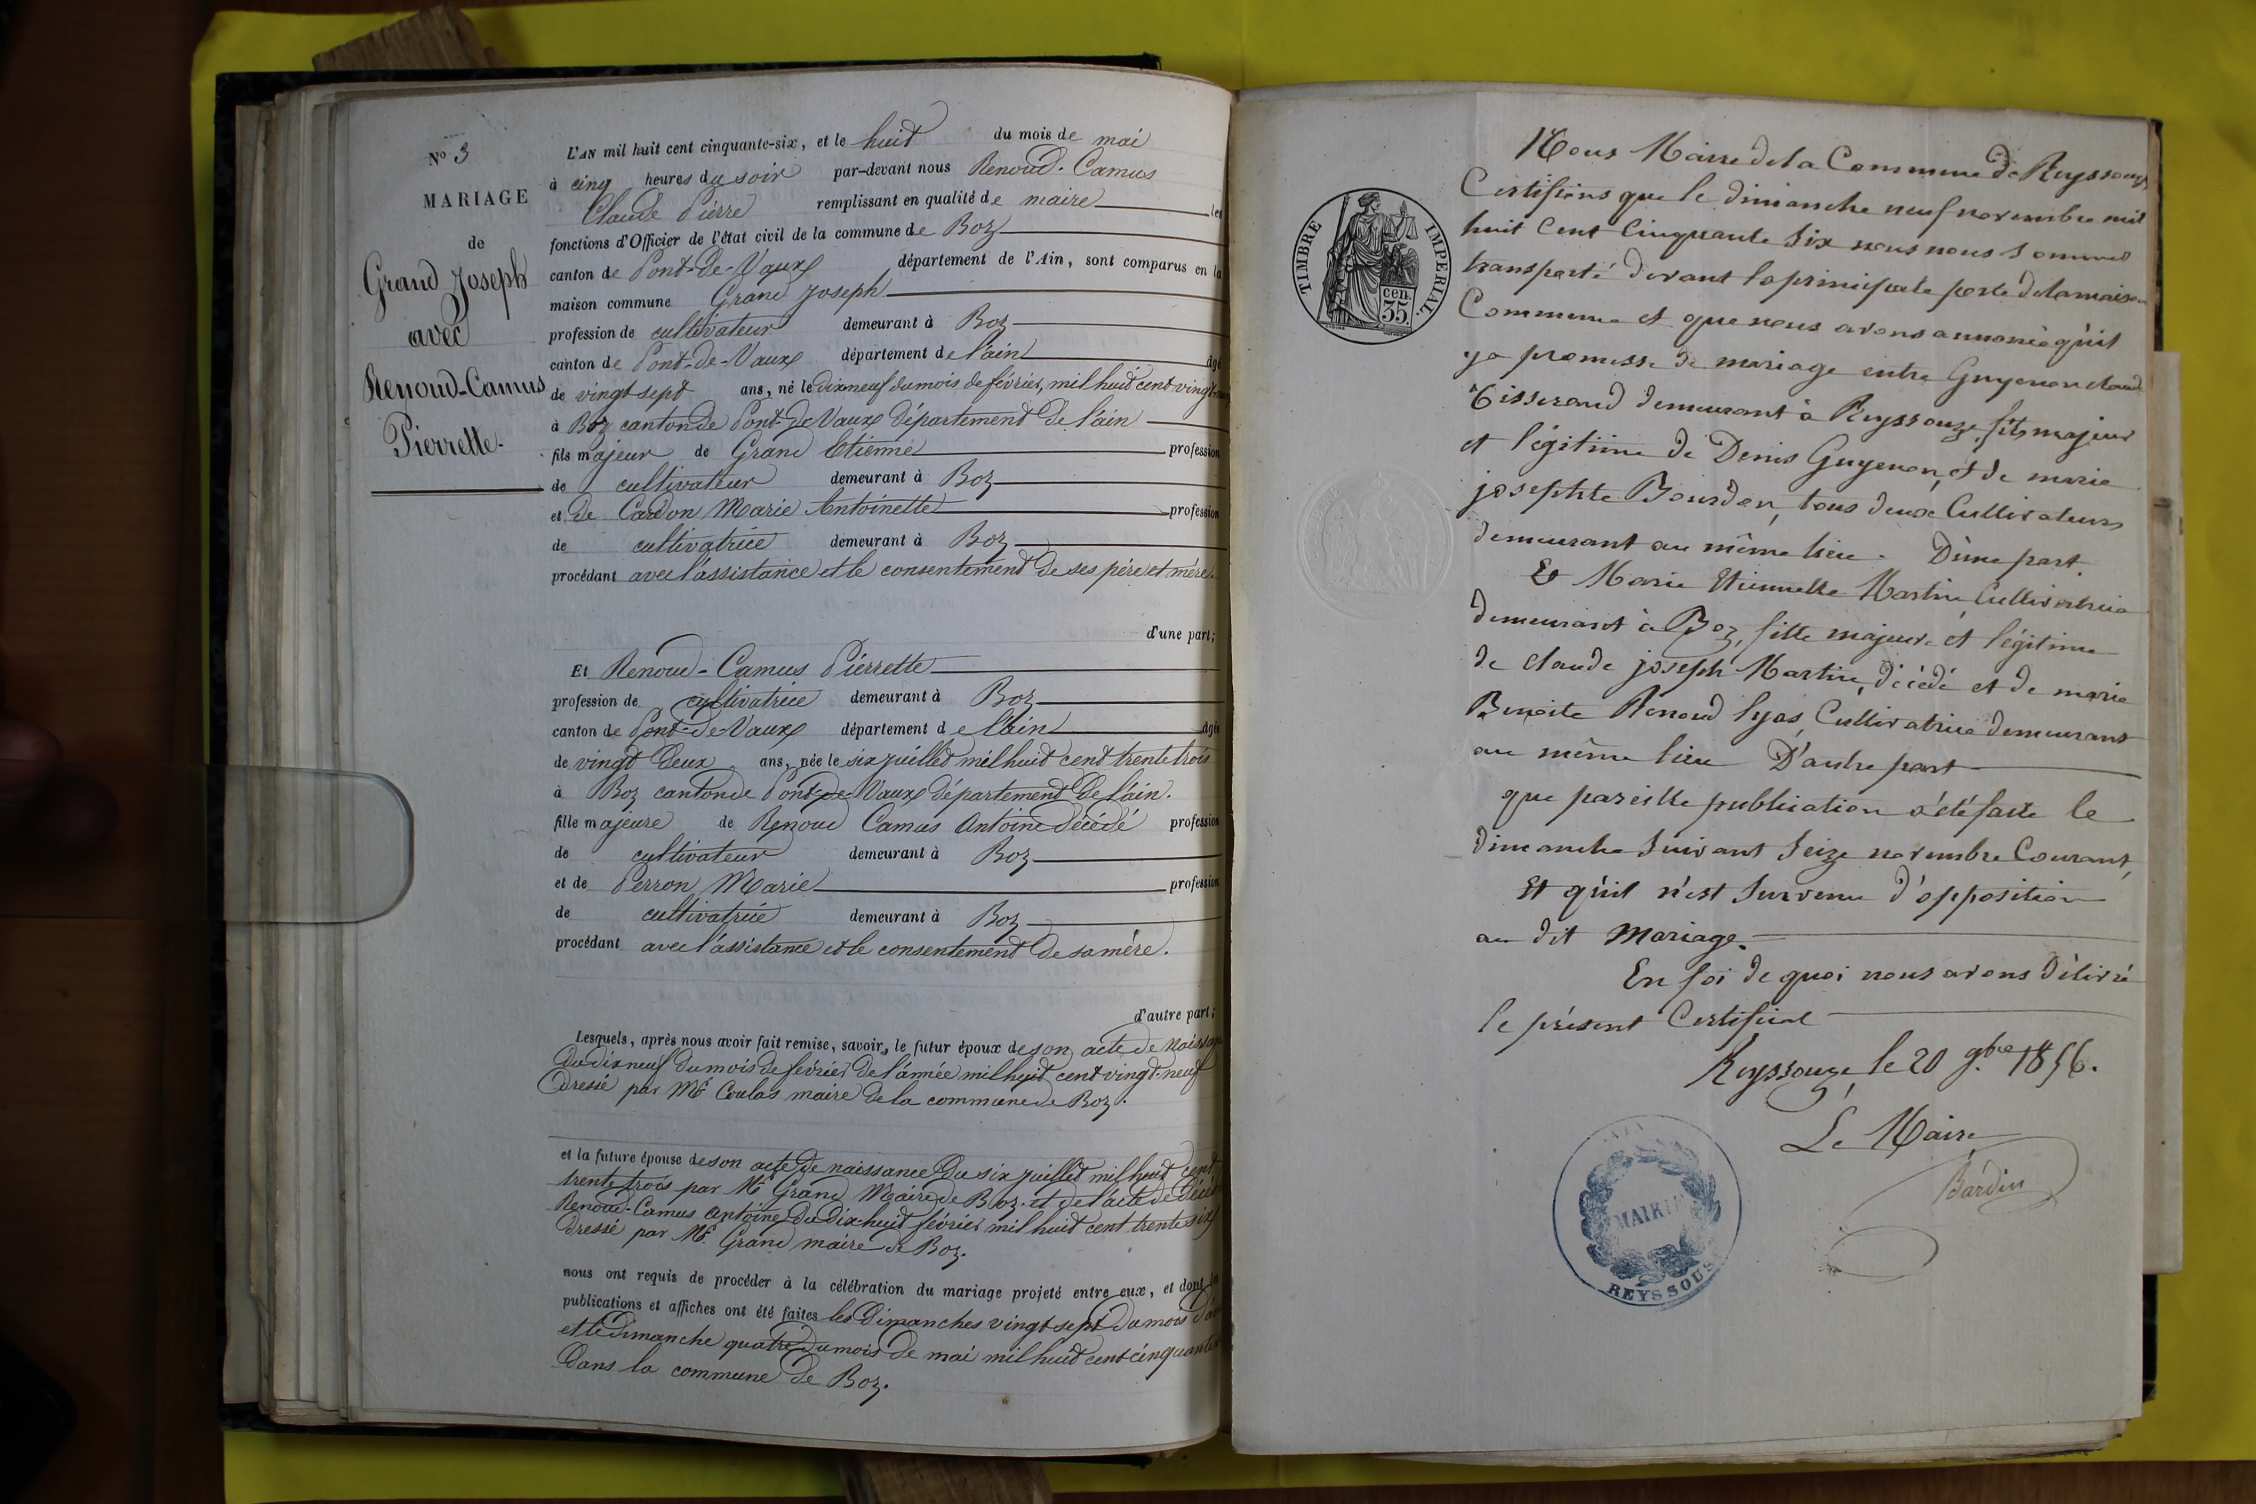 No 3
MARIAGE
de
Grand Joseph
avec
Renoud-Camus
Pierrette
L'AN mil huit cent cinquante-six, et le huit du mois de mai
à cinq heures du soir par-devant nous Renoud-Camus
Claude Pierre remplissant en qualité de maire les
fonctions d'Officier de l'état civil de la commune de Boz
canton de Pont-de-Vaux département de l'Ain, sont comparus en la
maison commune Grand Joseph
profession de cultivateur demeurant à Boz
canton de Pont-de-Vaux département de l'ain agé
de vingt sept ans, né le dixneuf du mois de février mil huit cent vingt-
à Boz canton de Pont-de-Vaux département de l'ain
fils majeur de Grand Etienne profession
de cultivateur demeurant à Boz
et de Cardon Marie Antoinette profession
de cultivatrice demeurant à Boz
procédant avec l'assistance et le consentement de ses père et mère.
d'une part;
Et Renoud-Camus Pierrette
profession de cultivatrice demeurant à Boz
canton de Pont-de-Vaux département de l'ain agée
de vingt deux ans, née le six juillet mil huit cent trente trois
à Boz canton de Pont-de-Vaux département de l'ain.
fille majeure de Renoud Camus Antoine décédé profession
de cultivateur demeurant à Boz
et de Perron Marie profession
de cultivatrice demeurant à Boz
procédant avec l'assistance et le consentement de sa mère.
d'autre part;
Lesquels, après nous avoir fait remise, savoir, le futur époux de son acte de naissance
du dixneuf du mois de février de l'année mil huit cent vingt-neuf
dressé par Mr Coulas maire de la commune de Boz.
et la future épouse de son acte de naissance du six juillet mil huit cent
trente trois par Mr Grand Maire de Boz. et de l'acte de décès
Renoud-Camus Antoine du dix-huit février mil huit cent trente six
dressé par Mr. Grand maire de Boz.
nous ont requis de procéder à la célébration du mariage projeté entre eux, et dont les
publications et affiches ont été faites les Dimanches vingt sept du mois
et le dimanche quatre du mois de mai mil huit cent cinquante
dans la commune de Boz.
TIMBRE IMPERIAL
35 cen.
Nous Maire de la Commune de Reyssouze
Certifions que le dimanche neuf novembre mil
huit Cent Cinquante Six nous nous sommes
transporté devant la principale porte de la maison
Commune et que nous avons annoncé qu'il
y a promesse de mariage entre Guyenon claude
Tisserand demeurant à Reyssouze, fils majeur
et légitime de Denis Guyenon, et de marie
josephte Bourdon, tous deux Cultivateurs
demeurant au même lieu. D'une part.
Et Marie Etiennette Martin, Cultivatrice
demeurant à Boz, fille majeure et légitime
de claude joseph Martin, décédé et de marie
Benoite Renoud lyas, Cultivatrice demeurant
au même lieu D'autre part
que pareille publication a été faite le
dimanche Suivant Seize novembre Courant,
Et qu'il n'est Survenu d'opposition
au dit Mariage.
En foi de quoi nous avons délivré
le présent Certificat
Reyssouze, le 20 9bre 1856.
Le Maire
Bardin
MAIRIE
REYSSOUZE